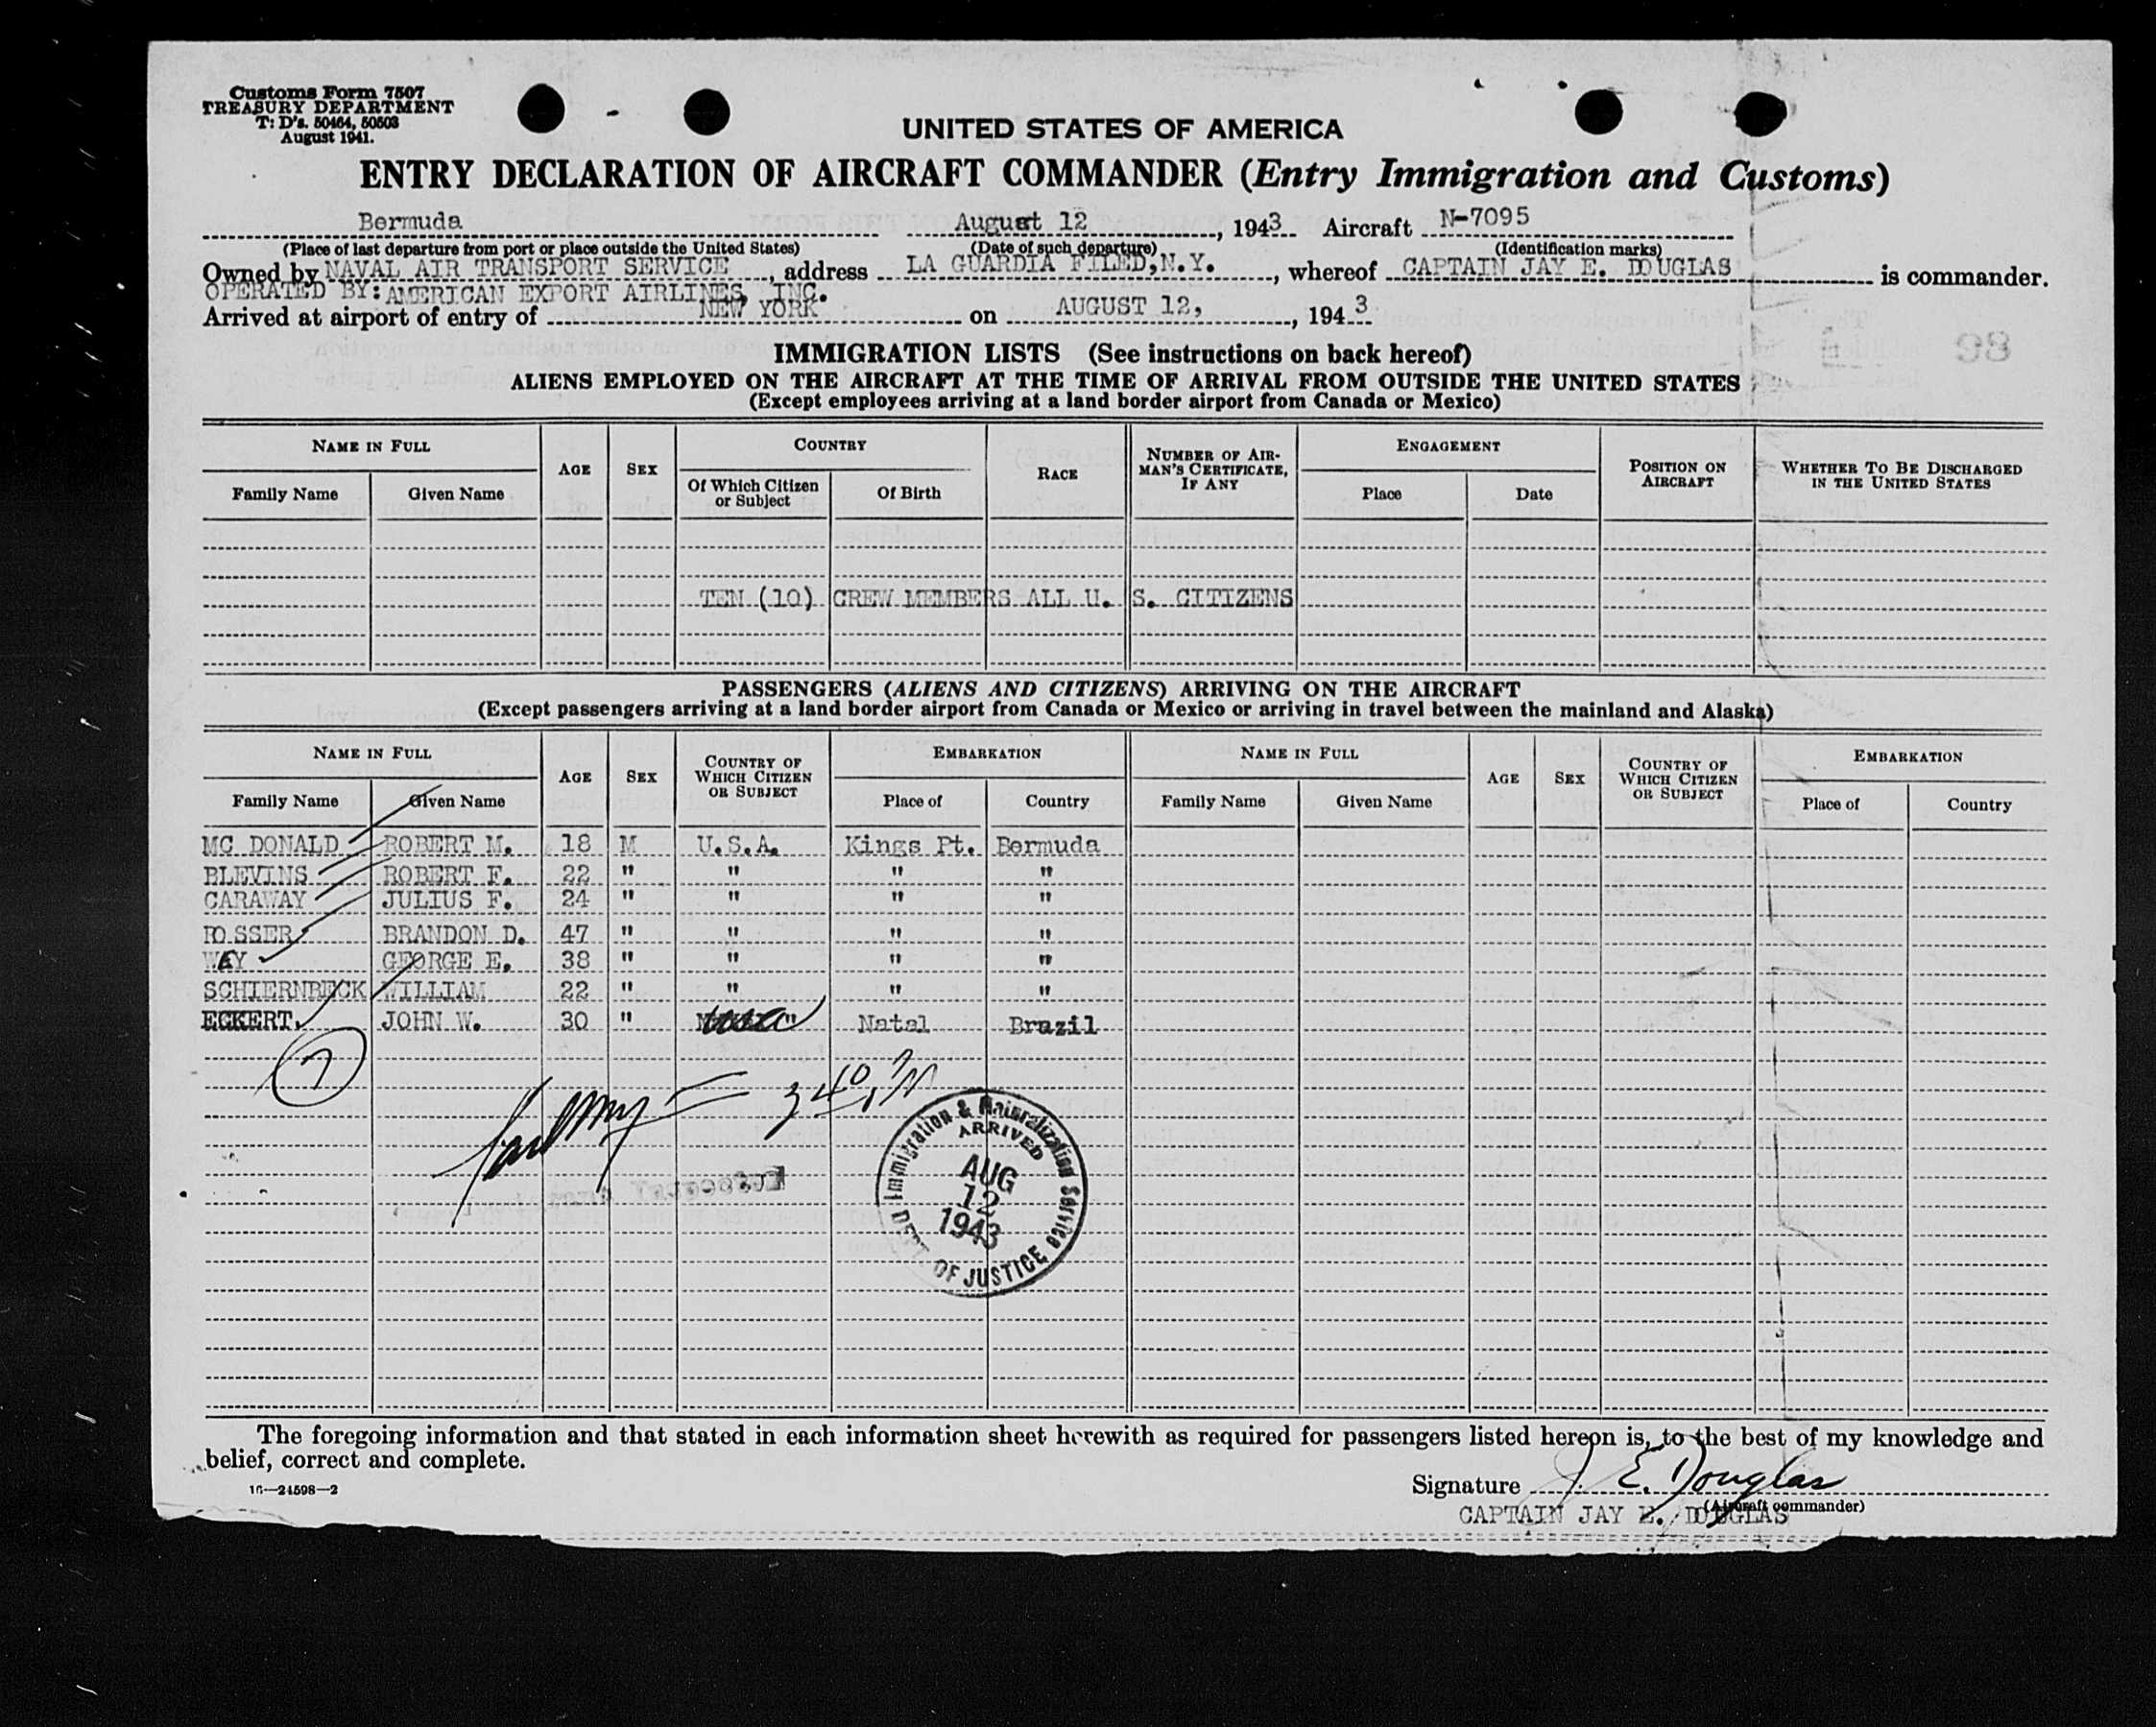 Customs Form 7507
TREASURY DEPARTMENT
T: D's. 50464, 50503
August 1941.
UNITED STATES OF AMERICA
ENTRY DECLARATION OF AIRCRAFT COMMANDER (Entry Immigration and Customs)
Bermuda August 12, 1943 Aircraft N-7095
(Place of last departure from port or place outside the United States) (Date of such departure) (Identification marks)
Owned by NAVAL AIR TRANSPORT SERVICE, address LA GUARDIA FILED, N.Y., whereof CAPTAIN JAY E. DOUGLAS is commander.
OPERATED BY: AMERICAN EXPORT AIRLINES, INC.
Arrived at airport of entry of NEW YORK on AUGUST 12, 1943
98
IMMIGRATION LISTS (See instructions on back hereof)
ALIENS EMPLOYED ON THE AIRCRAFT AT THE TIME OF ARRIVAL FROM OUTSIDE THE UNITED STATES
(Except employees arriving at a land border airport from Canada or Mexico)
NAME IN FULL AGE SEX COUNTRY RACE NUMBER OF AIRMAN'S CERTIFICATE, IF ANY ENGAGEMENT POSITION ON AIRCRAFT WHETHER TO BE DISCHARGED IN THE UNITED STATES
Family Name Given Name Of Which Citizen or Subject Of Birth Place Date
TEN (10) CREW MEMBERS ALL U. S. CITIZENS
PASSENGERS (ALIENS AND CITIZENS) ARRIVING ON THE AIRCRAFT
(Except passengers arriving at a land border airport from Canada or Mexico or arriving in travel between the mainland and Alaska)
NAME IN FULL AGE SEX COUNTRY OF WHICH CITIZEN OR SUBJECT EMBARKATION NAME IN FULL AGE SEX COUNTRY OF WHICH CITIZEN OR SUBJECT EMBARKATION
Family Name Given Name Place of Country Family Name Given Name Place of Country
MC DONALD ROBERT M. 18 M U.S.A. Kings Pt. Bermuda
BLEVINS ROBERT F. 22 " " " "
CARAWAY JULIUS F. 24 " " " "
DOSSER BRANDON D. 47 " " " "
WAY GEORGE E. 38 " " " "
SCHIERNBECK WILLIAM 22 " " " "
ECKERT, JOHN W. 30 " usa Natal Brazil
7
340 PM
Immigration & Naturalization Service
ARRIVED
AUG
12
1943
DEPT. OF JUSTICE
The foregoing information and that stated in each information sheet herewith as required for passengers listed hereon is, to the best of my knowledge and
belief, correct and complete.
16—24598—2
Signature J. E. Douglas
(Aircraft commander)
CAPTAIN JAY E. DOUGLAS